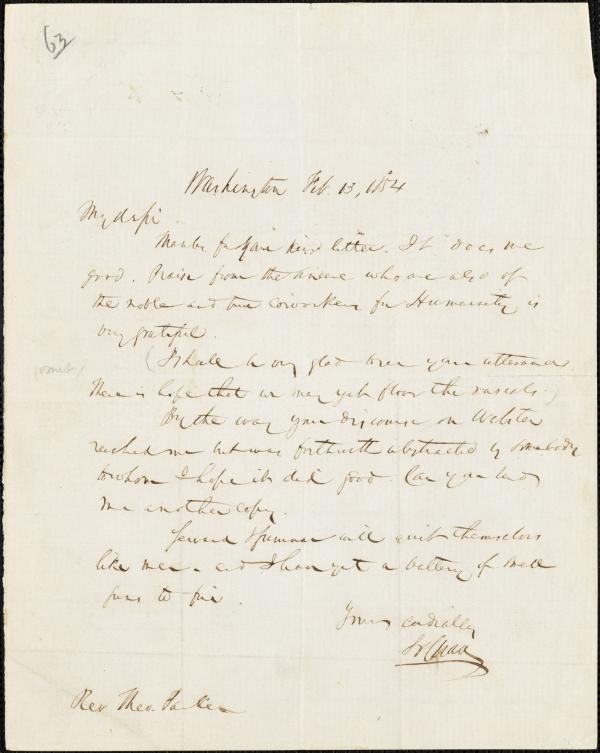 63
Washington Feb. 13, 1854
My dr Sir
Thanks for your kind letter. It does me
good. Praise from the sincere who are also of
the noble and true coworkers for Humanity is
very grateful.
(I shall be very glad to see your utterances.
(omit)
There is hope that we may yet floor the rascals.)
By the way your discourse on Webster
reached me but was forthwith abstracted by somebody
to whom I hope it did good. Can you send
me another copy.
Seward & Sumner will acquit themselves
like men. and I have yet a battery of small
guns to fire.
Yours cordially
S P Chase
Rev. Theo. Parker